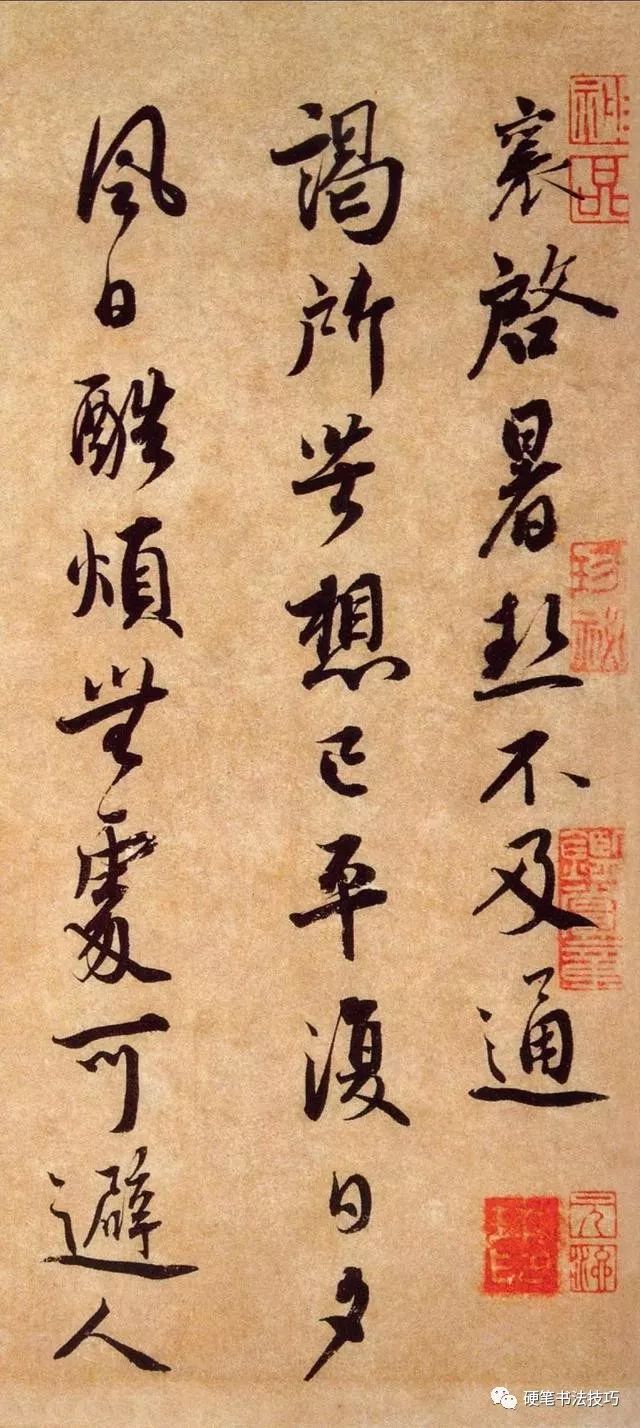 襄啓暑熱不及通
謁所苦想已平復日夕
風日酷煩無處可避人
神品
珍秘
硬笔书法技巧